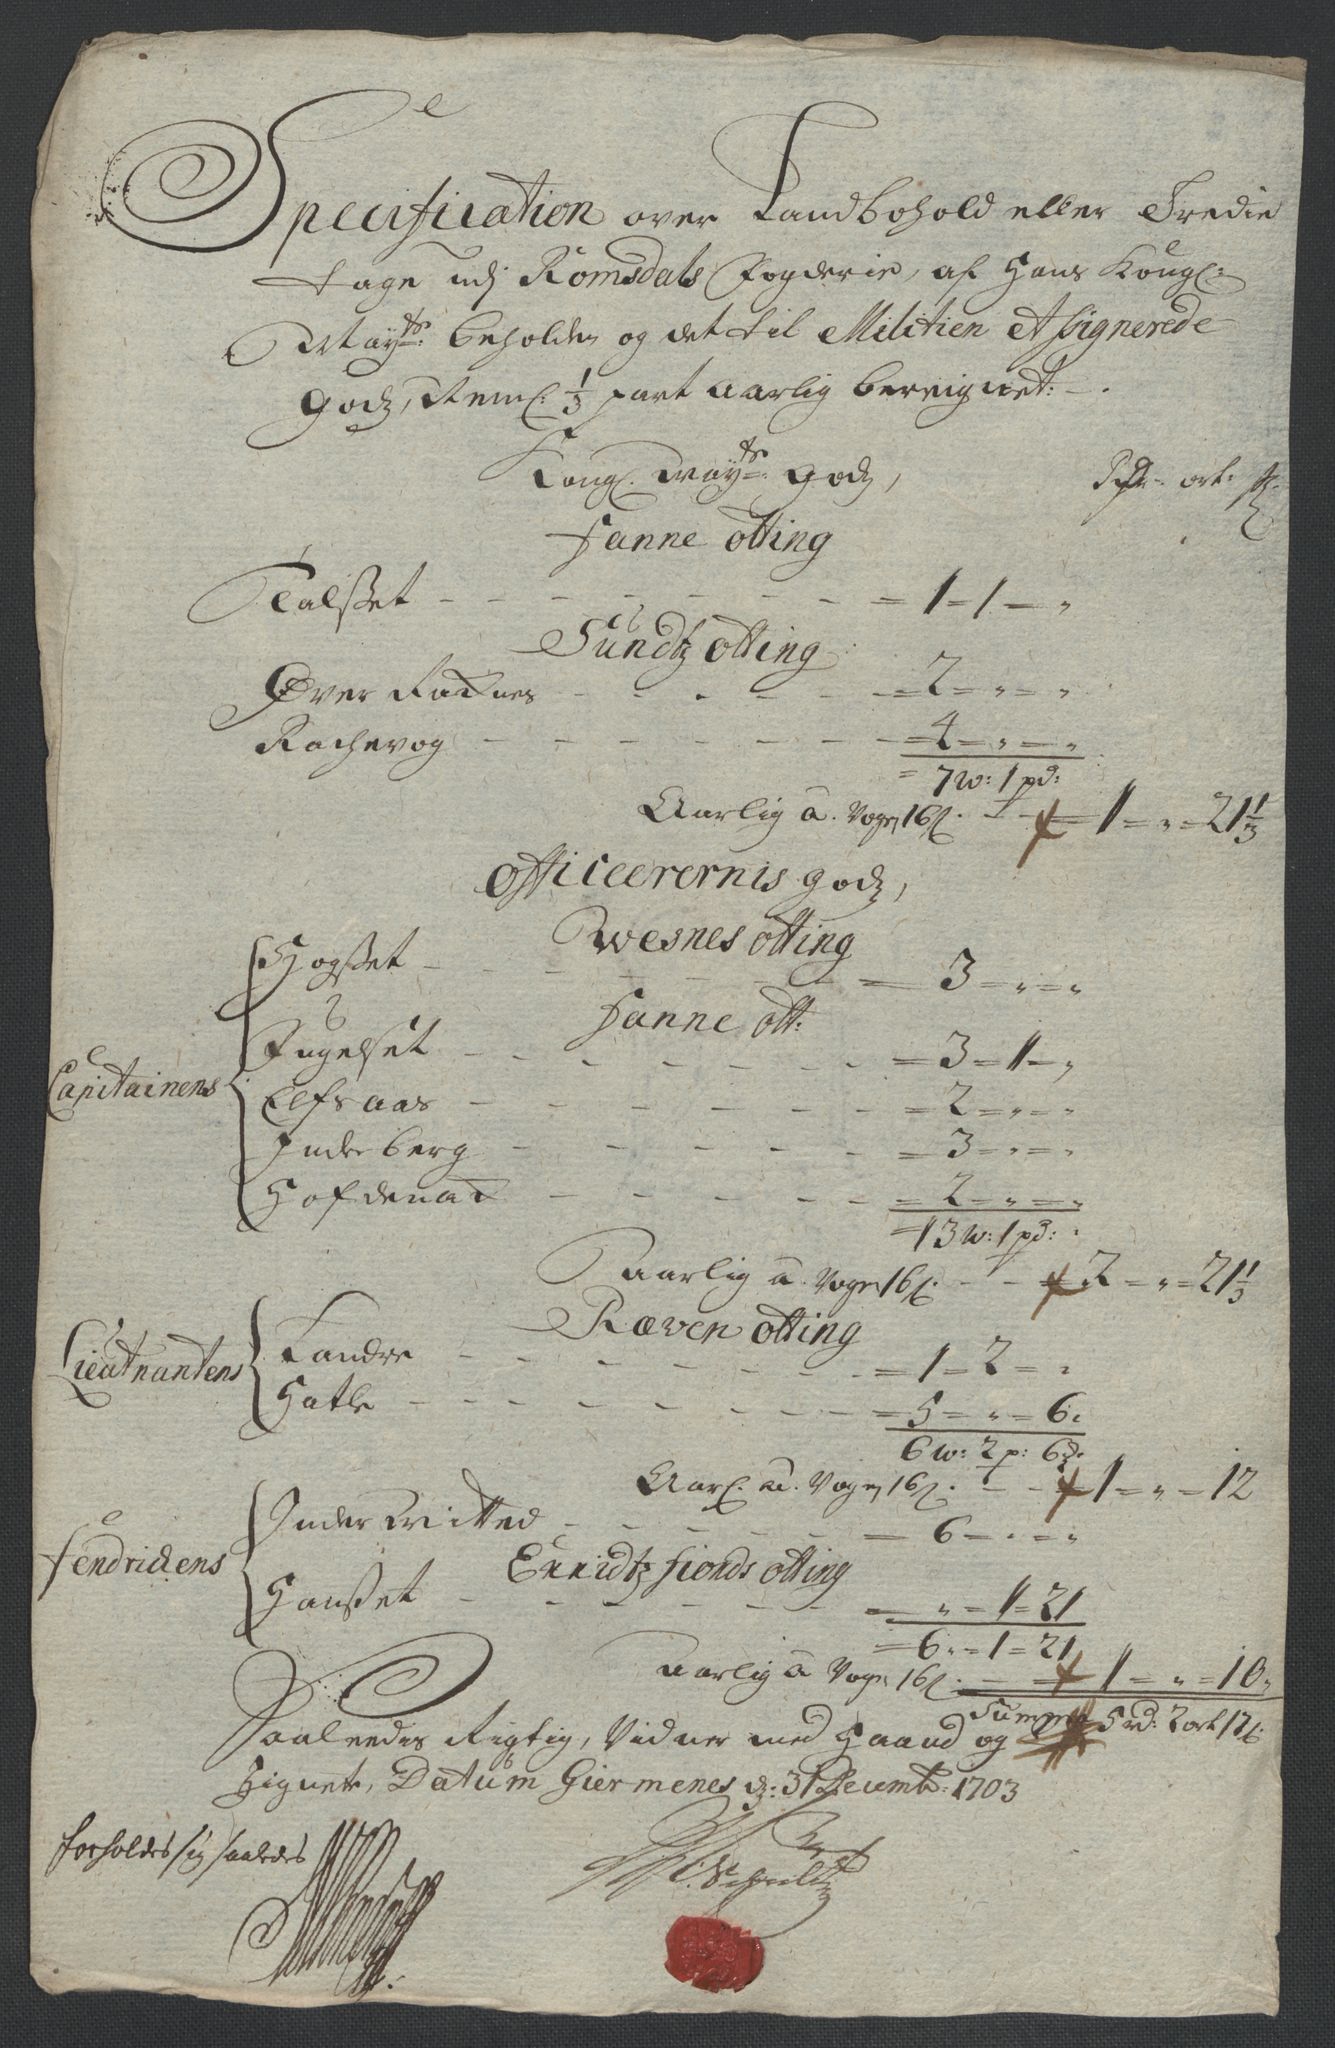 Specification over Landbohold eller Tredie
tage udj Romsdals Fogderie, af Hans Kongl:
Mayts: beholden og det til Militien Assignerede
Godz, Neml: 1/3 part aarlig beregnet: -
Kongl. Mayts: Godz,
Rdr. ort: ß
Fanne otting
Talsset - - - 1 - 1 - "
Sundtz otting
Øver Raknes - - - 2 - " - "
Rachevog - - - 4 - " - "
7 w: 1 pd:
Aarlig a. Voge, 16 ß. - - 1 - " - 21 1/3
Officerernis Godz,
Wesnes otting
Capitainens
Hogsset - - - 3 - " - "
Fanne ott:
Fugelset - - - 3 - 1 - "
Elfsaas - - - 2 - " - "
Indre berg - - - 3 - " - "
Hofdenak - - - 2 - " - "
13 w: 1 pd:
Aarlig a. Voge, 16 ß. - - 2 - " - 21 1/3
Ræven otting
Lieutnantens
Landre - - - 1 - 2 - "
Hatle - - - 5 - " - 6
6 w: 2 p: 6 m.
Aarl. a. Voge, 16 ß. - - 1 - " - 12
Fendrichens
Inder Vitted - - - 6 - " - "
Eriidtzfiords otting
Hausset - - - " - 1 - 21
6 " - 1 - 21
aarlig a Voge, 16 ß. - - 1 - " - 10
Summa 5 rd: 2 ort 17 ß
Saaledis Rigtig, Vidner med Haand og
Signete, Datum Giermenes d: 31 Decembr: 1703
forholdes sig saaledes